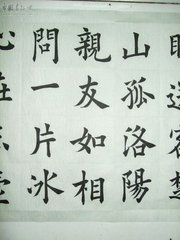 送客楚
山孤洛陽
親友如相
問一片冰
心在玉壺